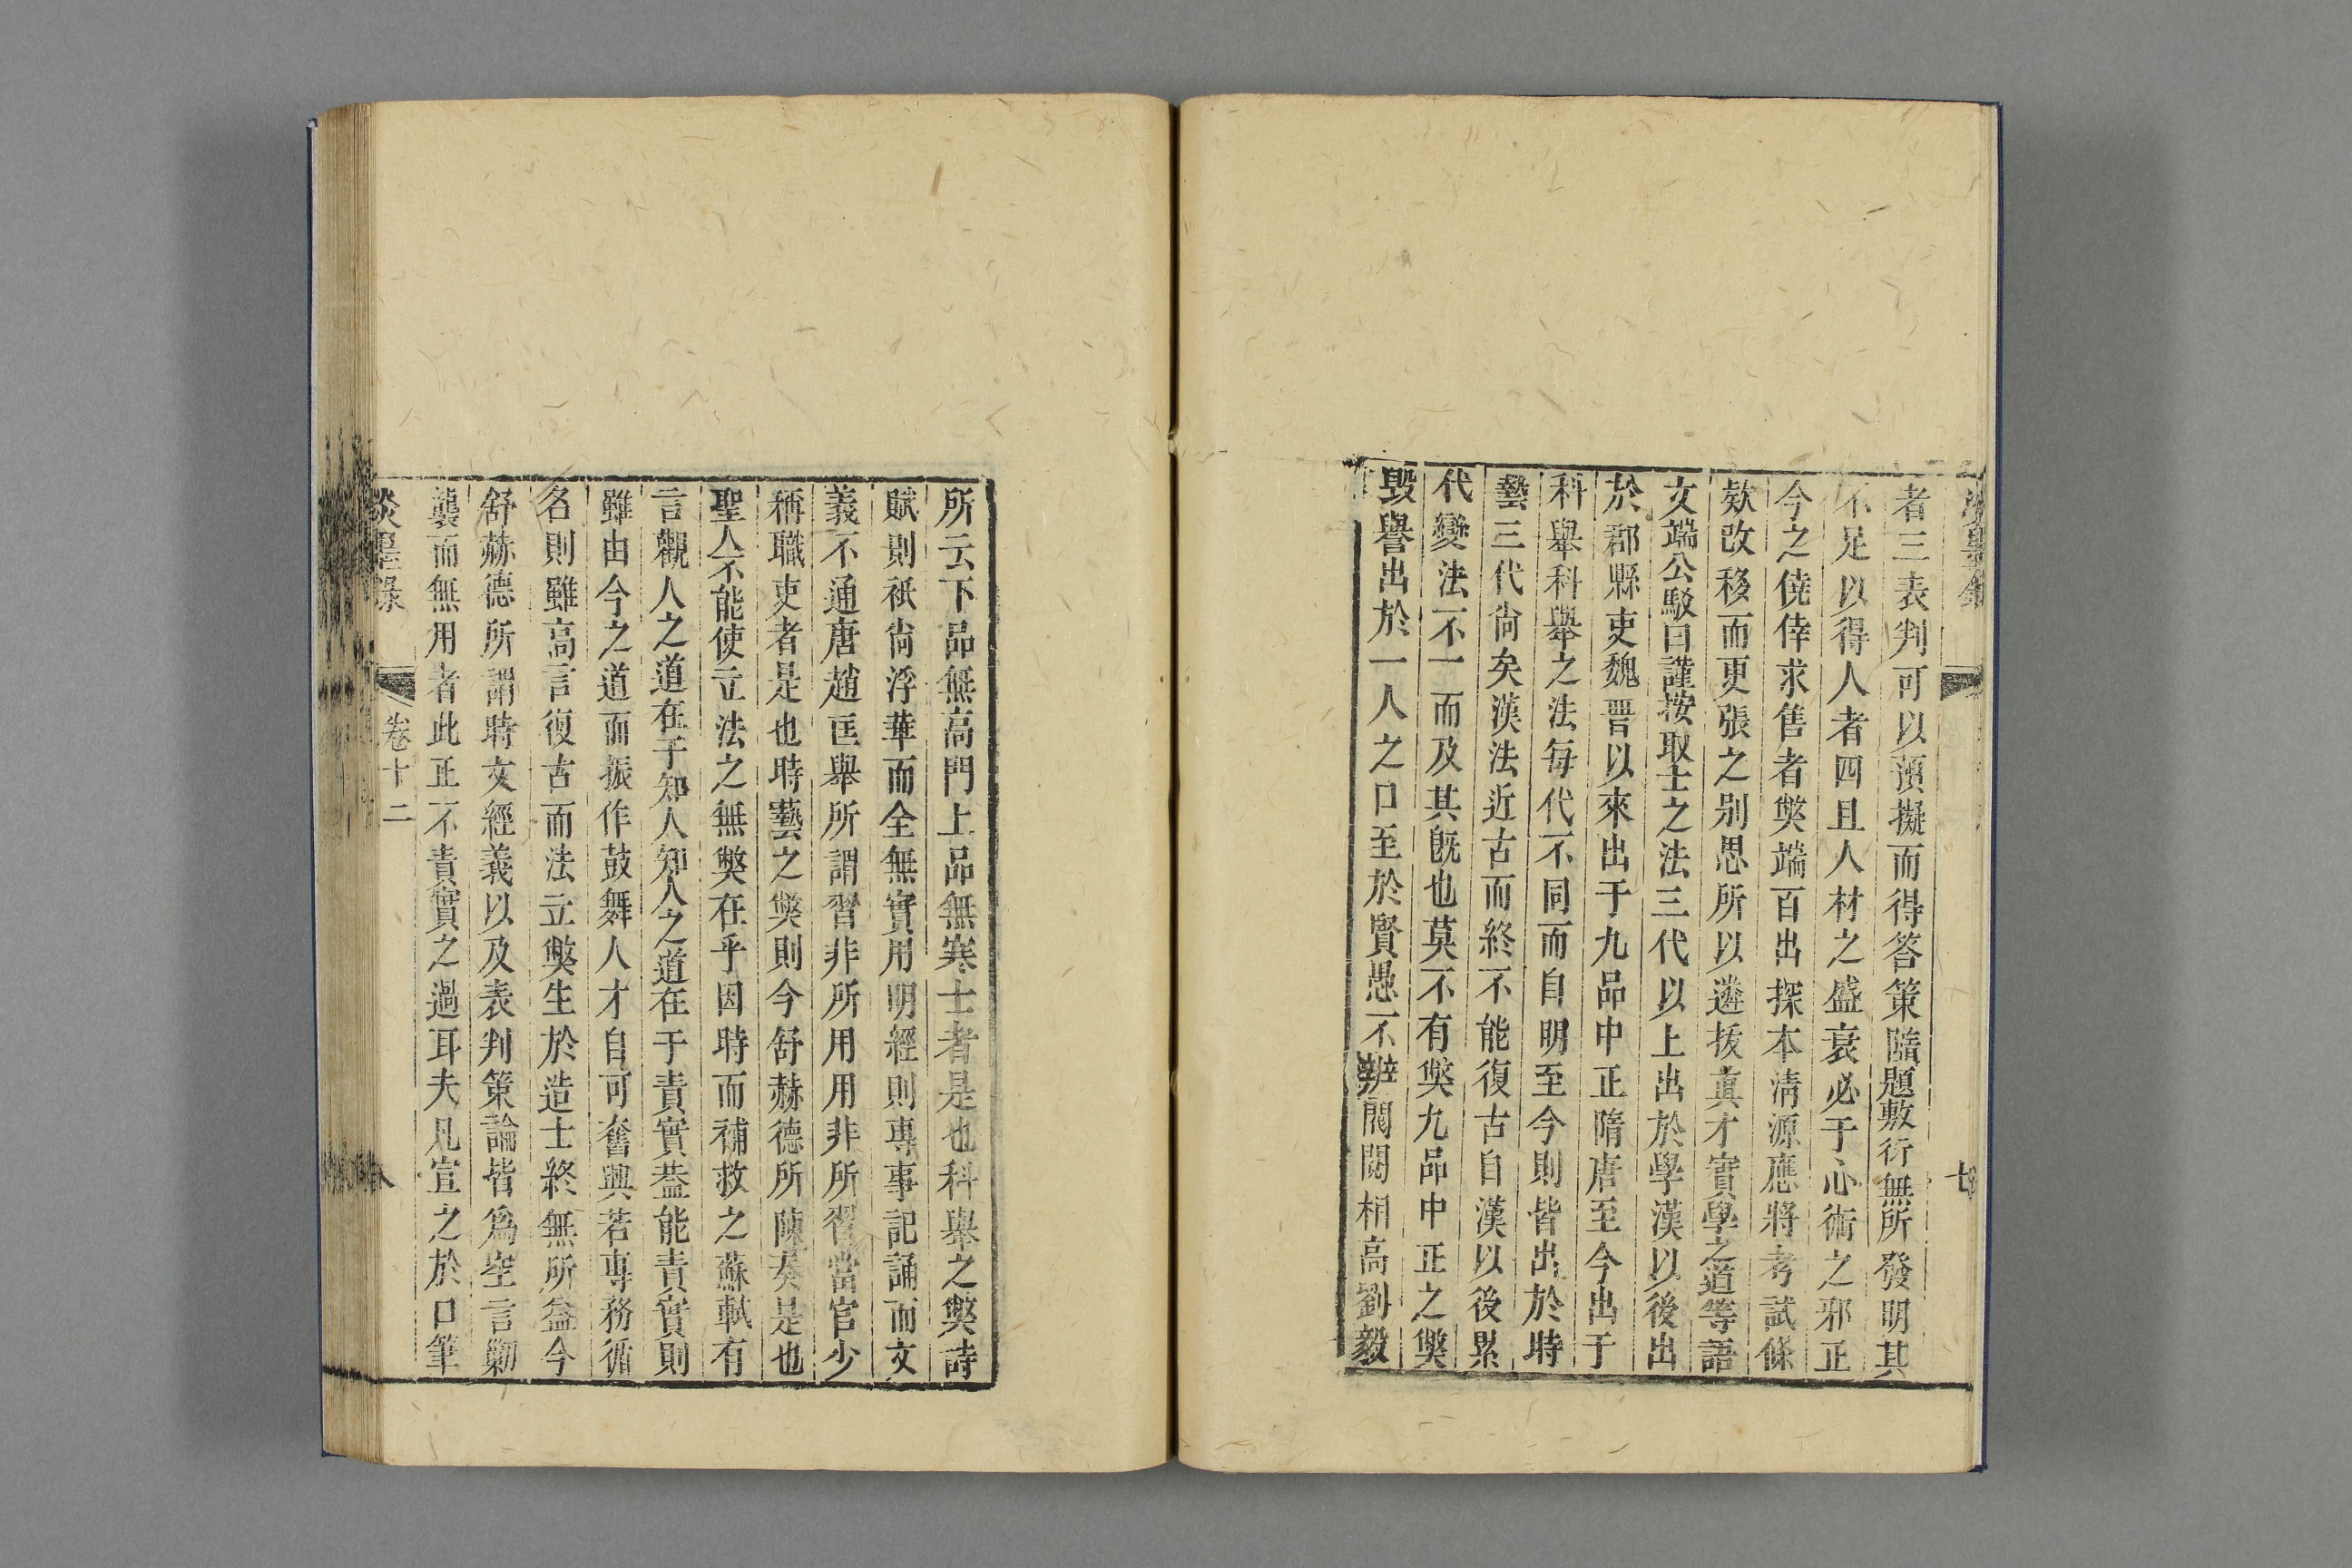 者三表判可以預擬而得答策隨題敷衍無所發明其
不足以得人者四且人材之盛衰必于心術之邪正
今之僥倖求售者獘端百出探本清源應將考試條
欵改移而更張之别思所以遴拔眞才實學之道等語
文端公駁曰謹按取士之法三代以上出於學漢以後出
於郡縣吏魏晉以來出于九品中正隋唐至今出于
科舉科舉之法每代不同而自明至今則皆出於時
藝三代尙矣漢法近古而終不能復古自漢以後累
代變法不一而及其旣也莫不有獘九品中正之獘
毁譽出於一人之口至於賢愚不辨閥閱相高劉毅
七
所云下品無高門上品無寒士者是也科舉之獘詩
賦則祇尙浮華而全無實用明經則專事記誦而文
義不通唐趙匡舉所謂習非所用用非所習當官少
稱職吏者是也時藝之獘則今舒赫德所陳奏是也
聖人不能使立法之無獘在乎因時而補救之蘇軾有
言觀人之道在于知人知人之道在于責實葢能責實則
雖由今之道而振作鼓舞人才自可奮興若專務循
名則雖高言復古而法立獘生於造士終無所益今
舒赫德所謂時文經義以及表判策論皆爲空言勦
襲而無用者此正不責實之過耳夫凡宣之於口筆
淡墨錄 卷十二 八